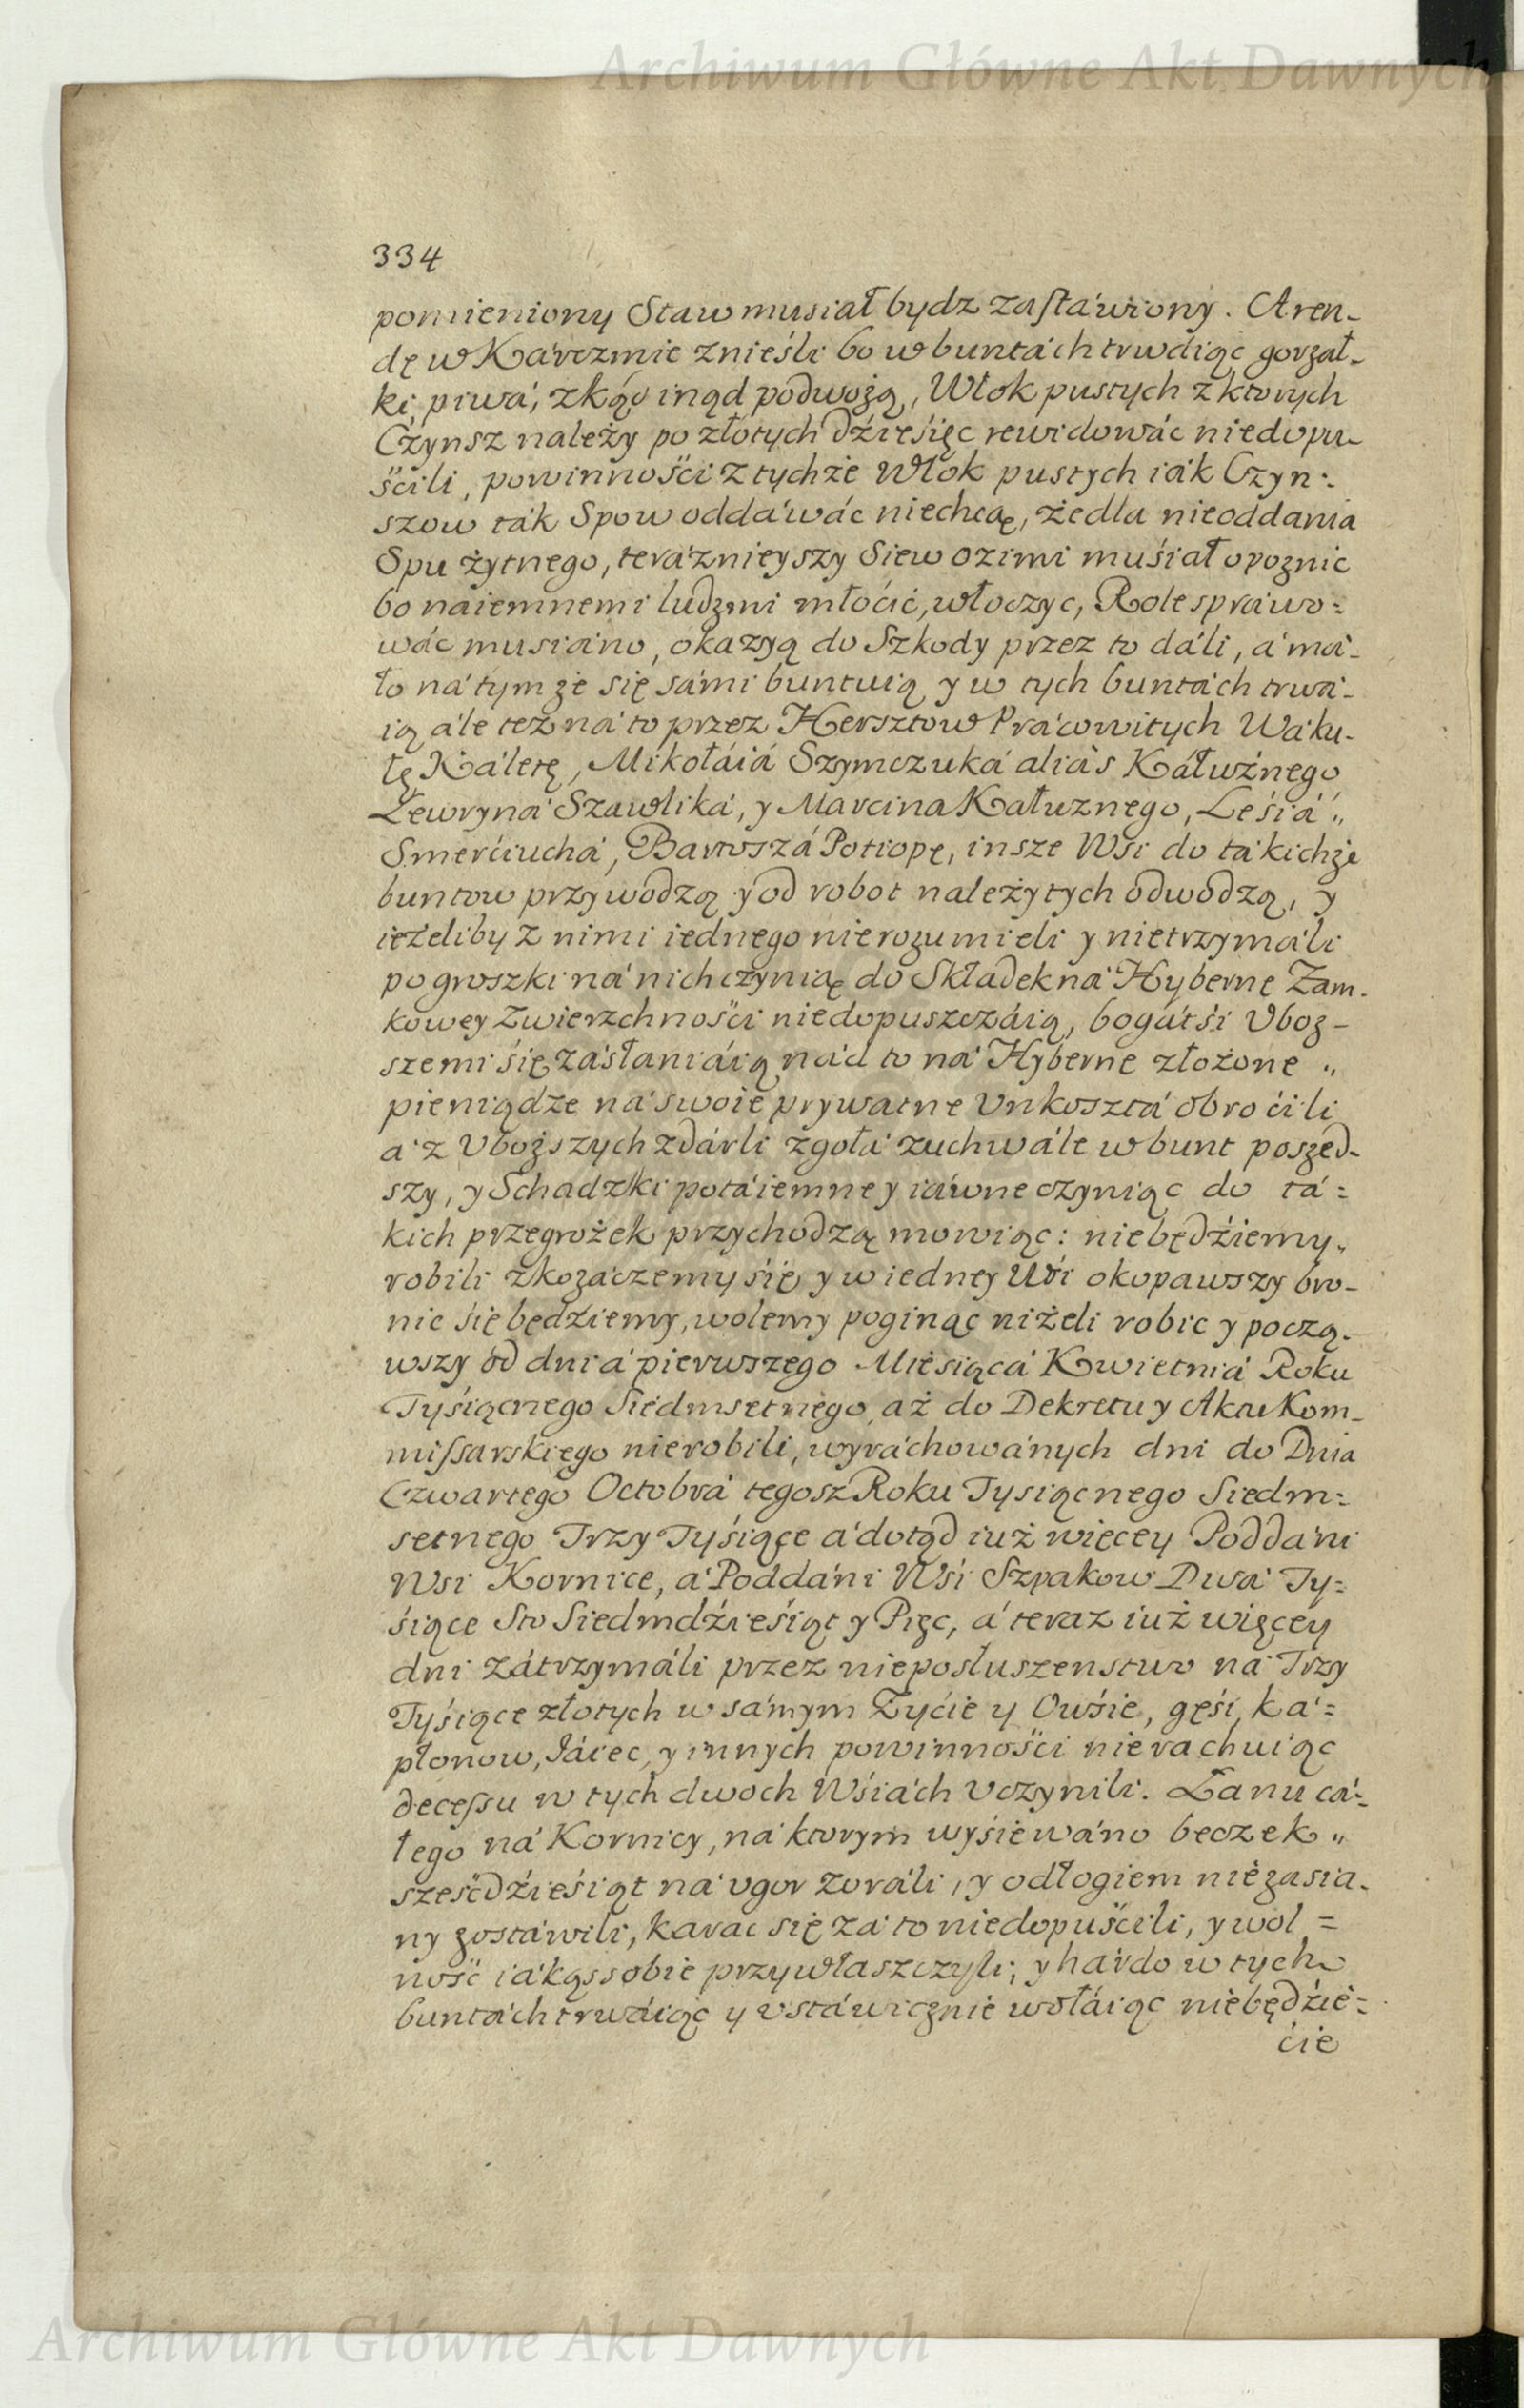 Archiwum Główne Akt Dawnych
334
pomieniony Staw musiał bydz zastáwiony. Aren-
dę w Kárczmie znieśli bo w buntách trwáiąc gorzał-
ki, piwá, zkąd inąd podwożą, Włok pustych z ktorych
Czynsz należy po złotych dźieśięc rewidowác niedopu-
śćili, powinnośći z tychże Włok pustych iák Czyn:
szow ták Spow oddáwác niechcą, że dla nieoddania
Spu żytnego, teráznieyszy Siew ozimi muśiał opoznic
bo náiemnemi ludzmi młoćić, włoczyc, Role spráwo=
wác musiáno, okazyą do Szkody przez to dáli, á má-
ło ná tym że się sámi buntuią y w tych buntách trwá-
ią ále też ná to przez Hersztow Prácowitych Waku-
łę Káletę, Mikołáiá Szymczuká aliás Káłużnego
Ławryná Szawliká, y Marcina Kałuznego, Leśiá "
Smerćiuchá, Bartoszá Potiopę, insze Wsi do tákichże
buntow przywodzą y od robot należytych odwodzą, y
ieżeliby z nimi iednego nierozumieli y nietrzymáli
pogroszki ná nich czynią do Składek ná Hyberne Zam-
kowey Zwierzchnośći niedopuszczáią, bogátśi Uboz-
szemi śię zásłaniáią nád to ná Hyberne złożone "
pieniądze ná swoie prywatne Unkosztá obroćili
á z Uboższych zdárli zgołá zuchwále w bunt poszed-
szy, y Schadzki potáiemne y iáwne czyniąc do tá=
kich przegrożek przychodzą mowiąc: niebędźiemy "
robili zkozaczemy śię y w iedney Wśi okopawszy bro-
nic śię będźiemy, wolemy poginąc niżeli robic y począ-
wszy od dniá pierwszego Mieśiącá Kwietniá Roku
Tyśiącnego Siedmsetnego aż do Dekretu y Aktu Kom-
missarskiego nierobili, wyráchowánych dni do Dnia
Czwartego Octobrá tegosz Roku Tysiącnego Siedm=
setnego Trzy Tyśiące á dotąd iuż więcey Poddáni
Wsi Kornice, á Poddáni Wśi Szpakow Dwá Ty=
śiące Sto Siedmdźieśiąt y Pięc, á teraz iuż więcey
dni zátrzymáli przez nieposłuszenstwo ná Trzy
Tyśiące złotych w sámym Zyćie y Owśie, gęśi, ká=
płonow, Iáiec, y innych powinnośći nierachuiąc
decessu w tych dwoch Wśiách uczynili. Łanu cá=
łego ná Kornicy, ná ktorym wyśiewáno beczek "
sześćdźieśiąt ná ugor zoráli, y odłogiem niezasia-
ny zostáwili, karac się zá to niedopuśćili, y wol =
ność iákąs sobie przywłaszczyli; y hárdo w tych
buntách trwáiąc y ustáwicznie wołáiąc niebędźie=
ćie
Archiwum Główne Akt Dawnych